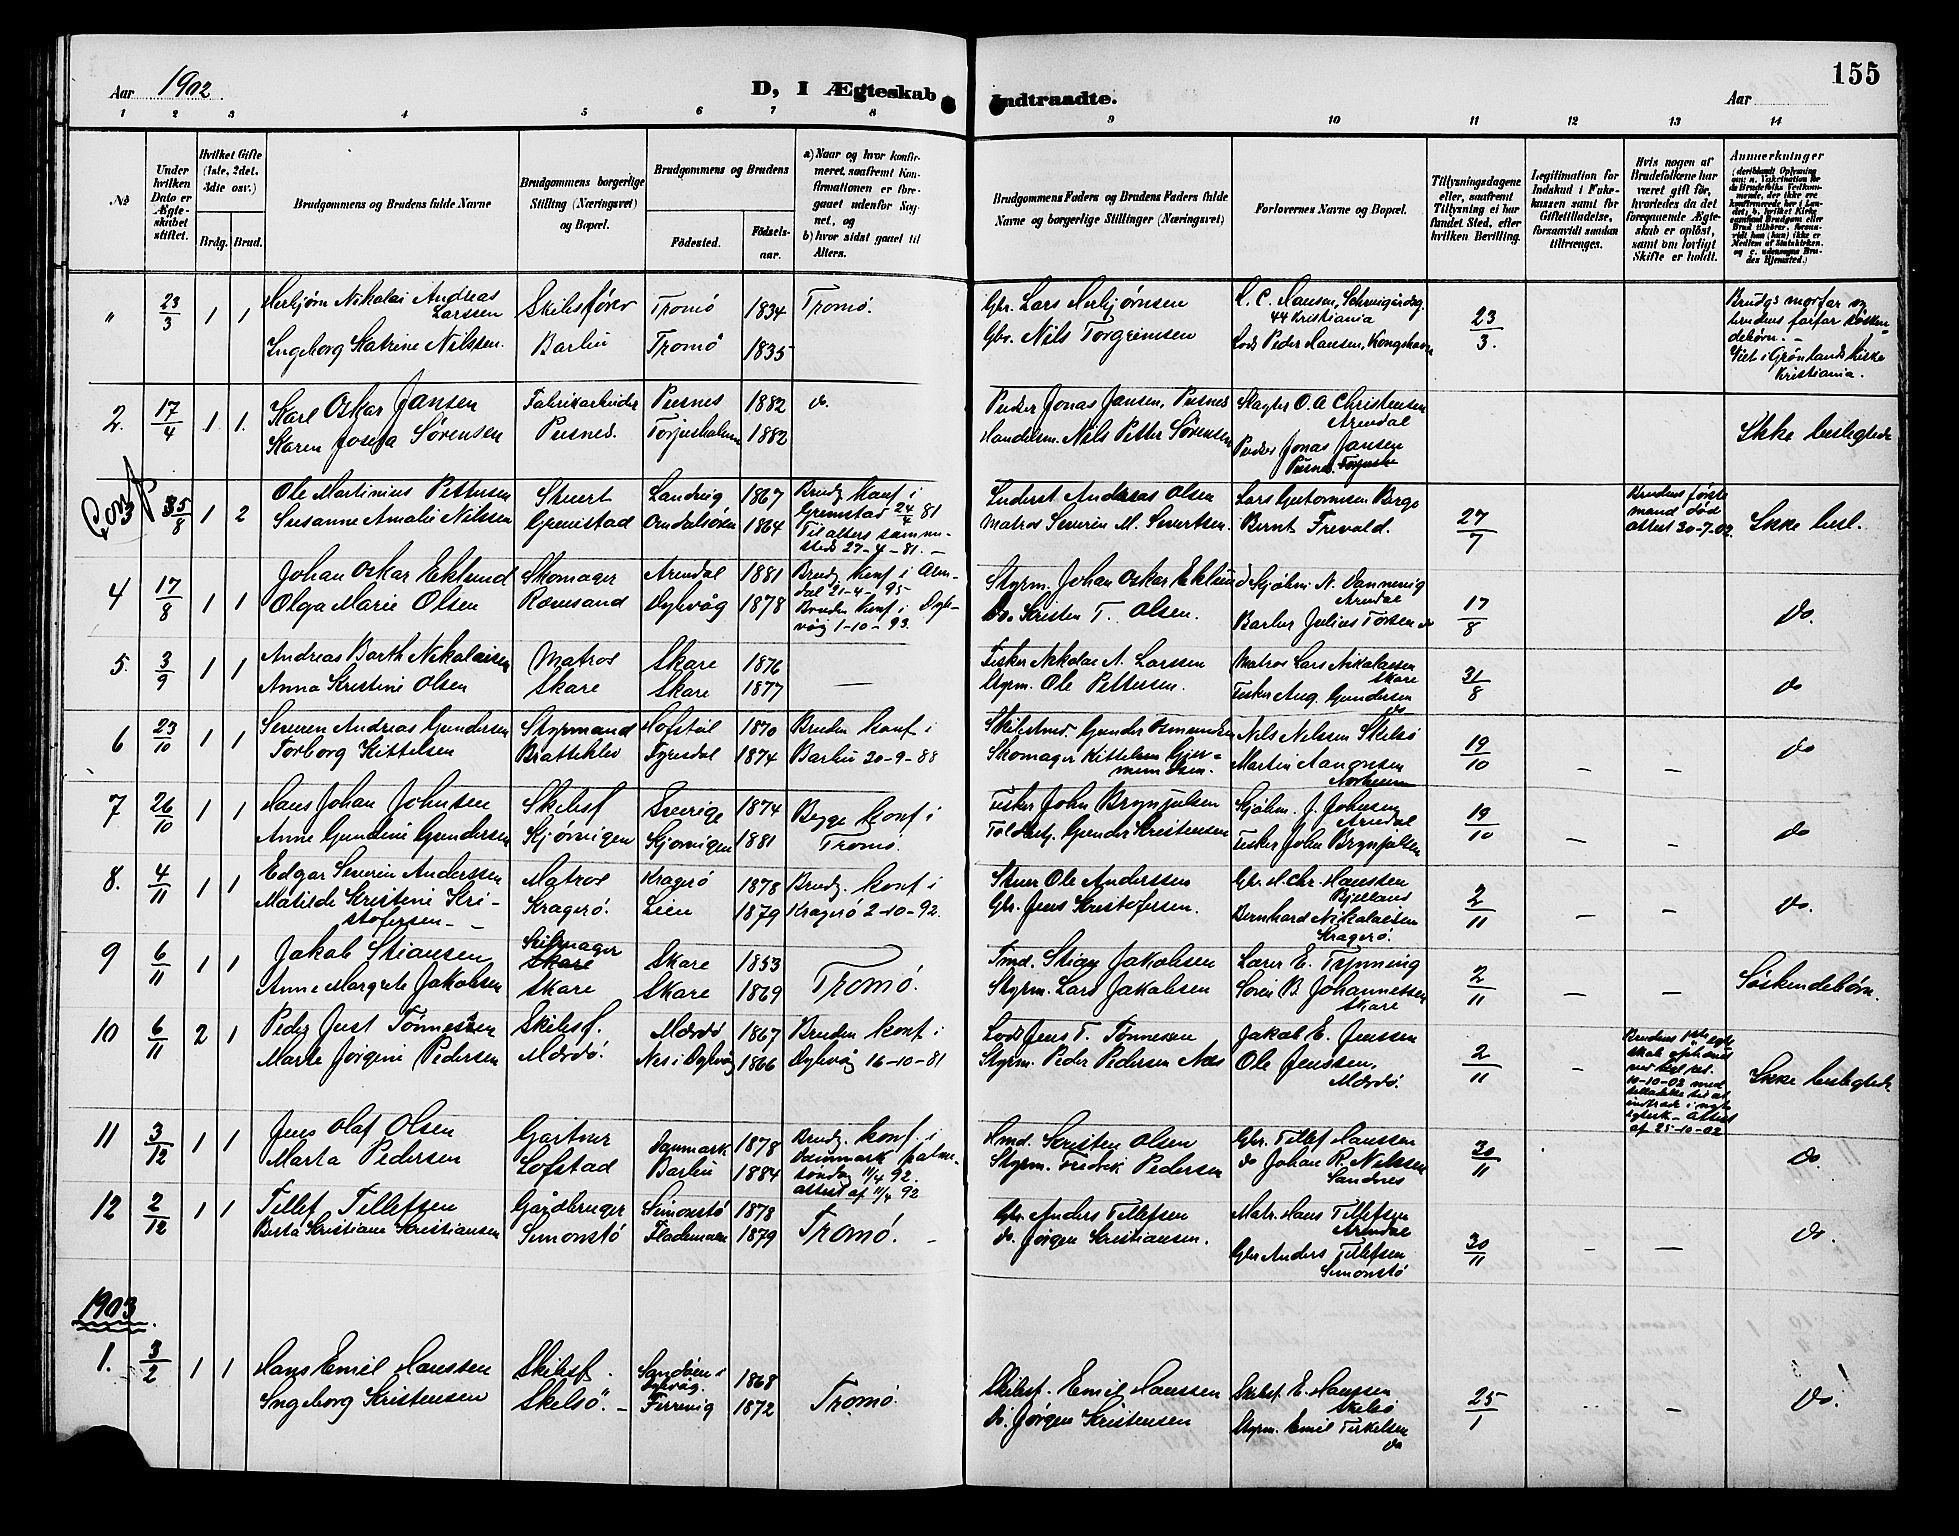 155
Aar 1902
D, I Ægteskab Indtraadte.
Aar
1 2 3 4 5 6 7 8 9 10 11 12 13 14
No
Under hvilken Dato er Ægteskabet stiftet.
Hvilket Gifte (1ste, 2det, 3die osv.)
Brdg. Brud.
Brudgommens og Brudens fulde Navne
Brudgommens borgerlige Stilling (Næringsvei) og Bopæl.
Brudgommens og Brudens
Fødested.
Fødselsaar.
a) Naar og hvor konfirmeret, saafremt Konfirmationen er foregaaet udenfor Sognet, og
b) hvor sidst gaaet til Alters.
Brudgommens Faders og Brudens Faders fulde Navne og borgerlige Stillinger (Næringsvei)
Forlovernes Navne og Bopæl.
Tillysningsdagene eller, saafremt Tillysning ei har fundet Sted, efter hvilken Bevilling.
Legitimation for Indskud i Fakkassen samt for Giftetilladelse, forsaavidt saadan tiltrænges.
Hvis nogen af Brudefolkene har været gift før, hvorledes da det foregaaende Ægteskab er opløst, samt om lovligt Skifte er holdt.
Anmærkninger
" 23/3 1 1 Herbjørn Nikolai Andreas Larssen Skibsfører Tromö 1834 Tromö. Gbr. Lars Herbjørnsen H. C. Hansen, Schweigårdsg. 44 Kristiania 23/3. Brudgs morfar og brudens farfar söskendebörn. –
Ingeborg Katrine Nilssen. Barbu Tromö 1835 Gbr. Nils Torgrimsen Lods Peder Hansen, Kongshavn Viet i Grønlands Kirke Kristiania.
2. 17/4 1 1. Karl Oskar Jansen Fabrikarbeider Pusnes 1882 do. Jonas Jansen, Pusnes Slagter O. A Christensen Arendal Ikke beslegtede
Karen Josefa Sørensen Pusnes. Torjusholmen 1882 Handelsm. Nils Petter Sørensen Jonas Jansen Pusnes.
Conf
3 5/8 1 2 Ole Martinius Pettersen Stuert Landvig 1867 Brudg. konf i Grimstad 24/4 81 Andreas Olsen Lars Guttormsen Berge 27/7 Brudens første mand död attest 30-7-02. Ikke besl.
Susanne Amalie Nilssen Grimstad 1864 Til alters sammesteds 27-4-81. – Matros Severin M. Sivertsen. Bernt Trevald.
4 17/8 1 1 Johan Oskar Eklund Skomager Arendal 1881 Brudg. konf i Arendal 21-4-95 Styrm. Johan Oskar Eklund Skjøhm. N. Dannevig Arendal 17/8 do.
Olga Marie Olsen Rævesand Dybvåg 1878 Bruden konf i Dybvåg 1-10-93. do. Kristen T. Olsen. Barber Julius do
5. 3/9 1 1 Andreas Barth Nikolaisen Matros Skare 1876 Fisker Nikolai A. Larssen Matros Lars Nikolaisen Skare 31/8 do
Anna Kristine Olsen Skare Skare 1877 — Styrm. Ole Pettersen. Fisker Aug. Gundersen do
6 23/10 1 1 Severin Andreas Gundersen Styrmand Hofstöl 1870 Bruden konf i Skibstmd. Gunder Osmundsen Nils Nilssen Skilsö 19/10 – – do
Torborg Kittelsen Bratteklev Fyresdal 1874 Barbu 30-9-88 Skomager Kittel Martin Aanonsen
7 26/10 1 1 Hans Johan Johnsen Skibsf Sverige 1874 Begge konf i Fisker John Brynjulsen Skjöhm. J. Johnsen Arendal 19/10 – – do
Anne Gundine Gundersen Gjörvigen Gjörvigen 1881 Tromö. Toldbetj. Gunder Kristensen Fisker John Brynjulsen
8. 4/11 1 1 Edgar Severin Anderssen Matros Kragerö 1878 Brudg. konf i Stuer Ole Anderssen Gbr. H. Chr. Hanssen Bjelland 2/11 – – do.
Matilde Kristine Kristofersen – Kragerö. Lien 1879 Kragerö 2-10-92. Gbr. Jens Kristofersen. Bernhard Nikolaisen Kragerö.
9 6/11 1 1 Jakob Stiansen Seilmager Skare 1853 Tmd. Stian Jakobsen Lærer E. Trynning 2/11 – – Söskendebörn.
Anne Margrete Jakobsen Skare Skare 1869 Tromö. Styrm. Lars Jakobsen Soren B. Johannessen Skare
10 6/11 2 1 Peder Just Tönnessen Skibsf. Mærdö 1867 Bruden konf i Lods Jens T. Tönnesen Jakob E. Jenssen 2/11 – 10-10-02 attest af 25-10-02 Ikke beslegtede
Marte Jörgine Pedersen Mærdö. Nes i Dybvåg 1866 Dybvåg 16-10-81 Styrm. Peder Pedersen Næs Ole Jenssen, Mærdö.
11 3/12 1 1 Jens Olaf Olsen Gartner Danmark 1878 Brudg. konf i Danmark palmesöndag 11/4 92. attest af 11/4 92 Hmd. Kristen Olsen Gbr. Tellef Hanssen 30/11 do.
Marta Pedersen Lofstad Barbu 1884 Styrm. Fredrik Pedersen do Johan R. Nilssen Sandnes
12 2/12 1 1 Tellef Tellefsen Gårdbruger Simonstö 1878 Tromö. – Gbr. Anders Tellefsen Matr. Hans Tellefsen Arendal 30/11 – — do.
Berta Kristiane Kristiansen Simonstö Flademoen 1879 do. Jörgen Kristiansen. Gbr Anders Tellefsen Simonstö
1903.
1. 3/2 1 1 Hans Emil Hanssen Skibsf. Sandöen i Dybvåg. 1868 Tromö. Skibsf. Emil Hanssen Skibsf. E. Hanssen Skilsö 25/1 – do.
Ingeborg Kristensen Skilsö. – 1872 do. Jörgen Kristensen Styrm. Emil Terkelsen do